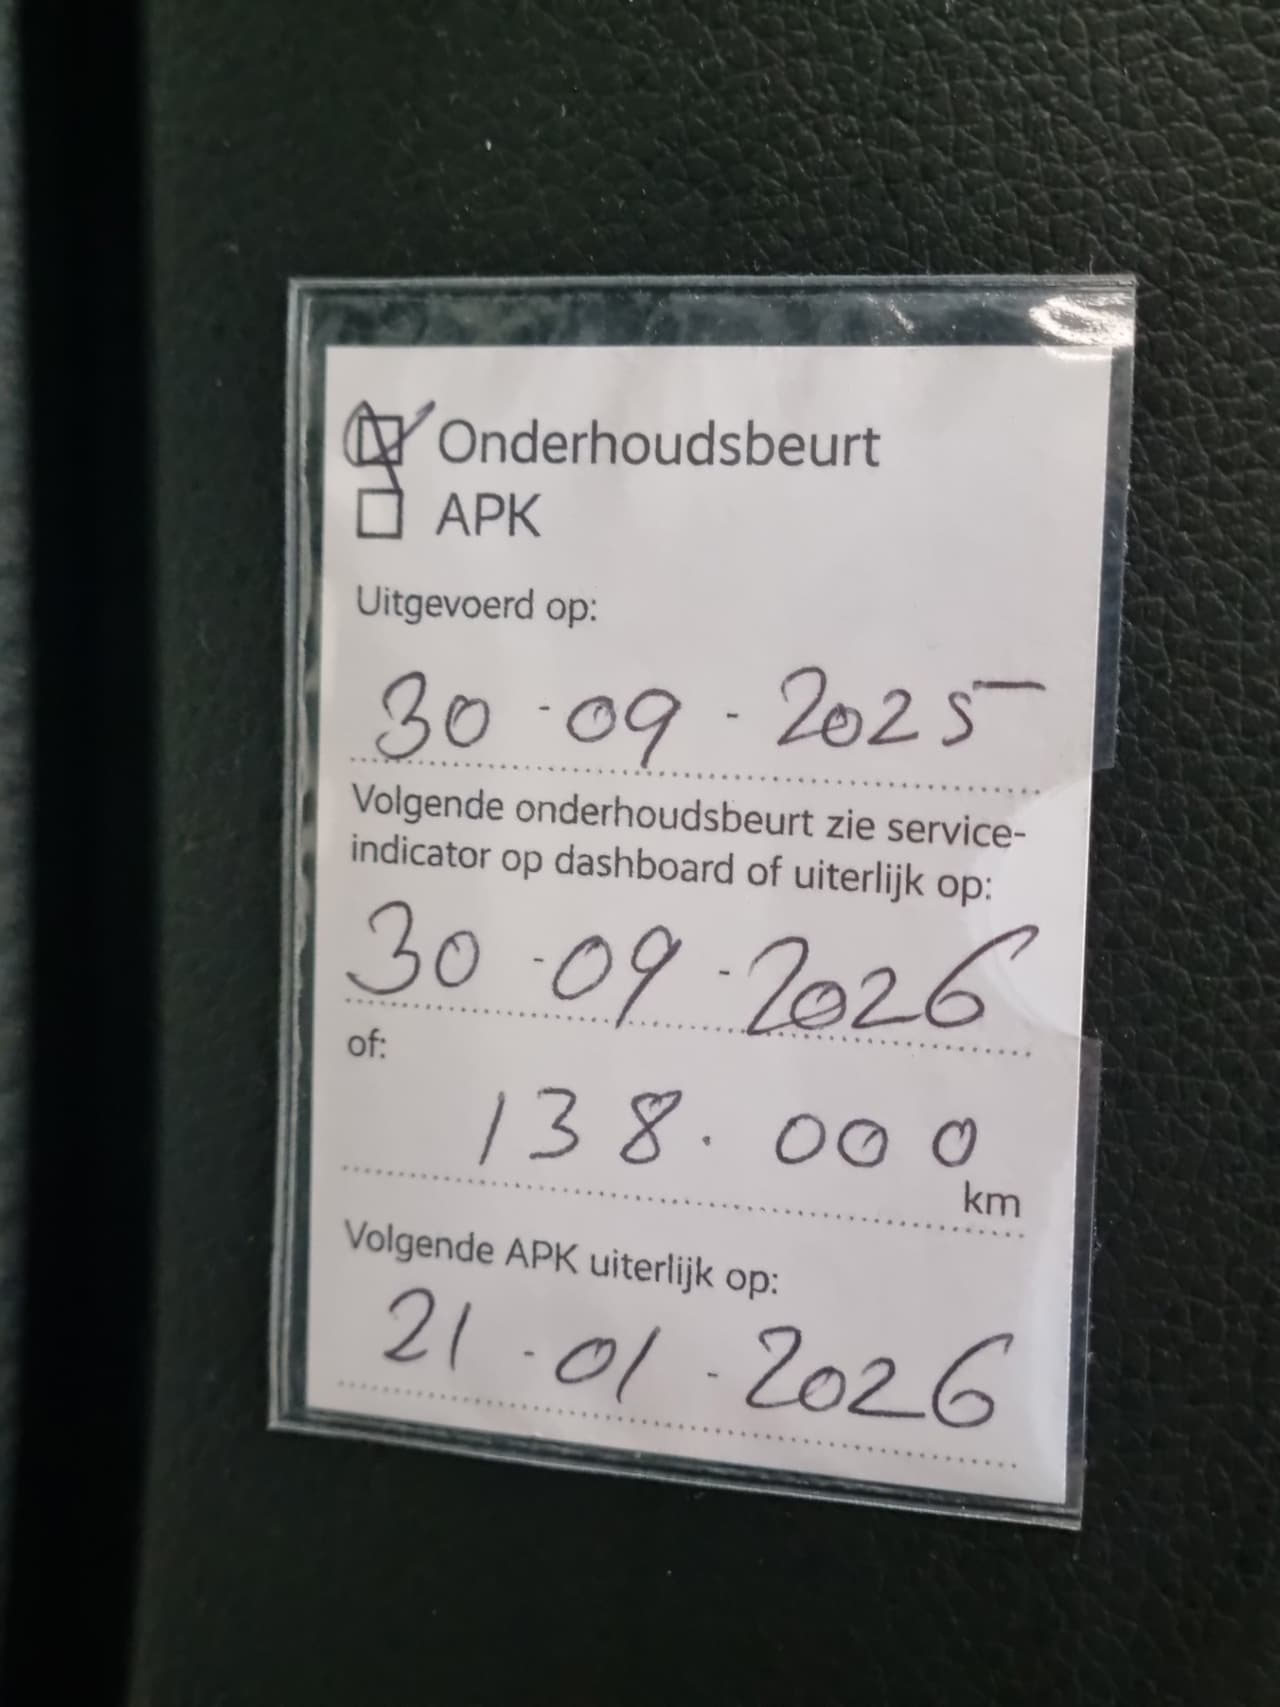 Onderhoudsbeurt
APK
Uitgevoerd op:
30-09-2025
Volgende onderhoudsbeurt zie service-
indicator op dashboard of uiterlijk op:
30-09-2026
of:
138.000
km
Volgende APK uiterlijk op:
21-01-2026